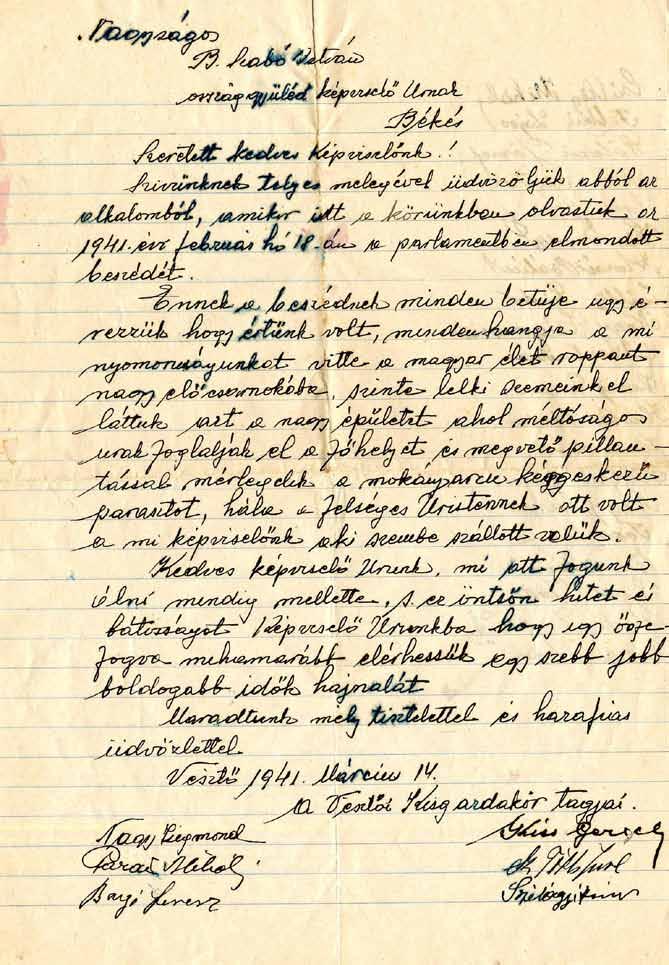 Nagyságos
B. Szabó István
országgyűlési képviselő Urnak
Békés
Szeretett kedves Képviselőnk!!
Szivünknek teljes melegével üdvözöljük abból az
alkalomból, amikor itt a körünkben olvastuk az
1941. évi február hó 18-án a parlamentben elmondott
beszédét.
Ennek a beszédnek minden betüje ugy é-
rezzük hogy értünk volt, minden hangja a mi
nyomoruságunkat vitte a magyar élet roppant
nagy előcsarnokába, szinte lelki szemeinkel
láttuk azt a nagy épületet ahol méltóságos
urak foglalják el a főhelyet és megvető pillan-
tással mérlegelek a mokány arcu kérgeskezü
parasztot, hála a Felséges Úristennek ott volt
a mi képviselőnk aki szembe szállott velük.
Kedves képviselő Urunk, mi ott fogunk
élni mindig mellette, s ez öntsön hitet és
bátorságot Képviselő Urunkba hogy igy össze-
fogva mihamarább elérhessük egy szebb jobb
boldogabb idők hajnalát
Maradtunk mély tisztelettel és hazafias
üdvözlettel
Vésztő 1941. Március 14.
a Vésztői Kisgazdakör tagjai.
Nagy Zsigmond
Kiss Gergely
Mihály
Tóth
Bagi Ferenc
Szilágyi